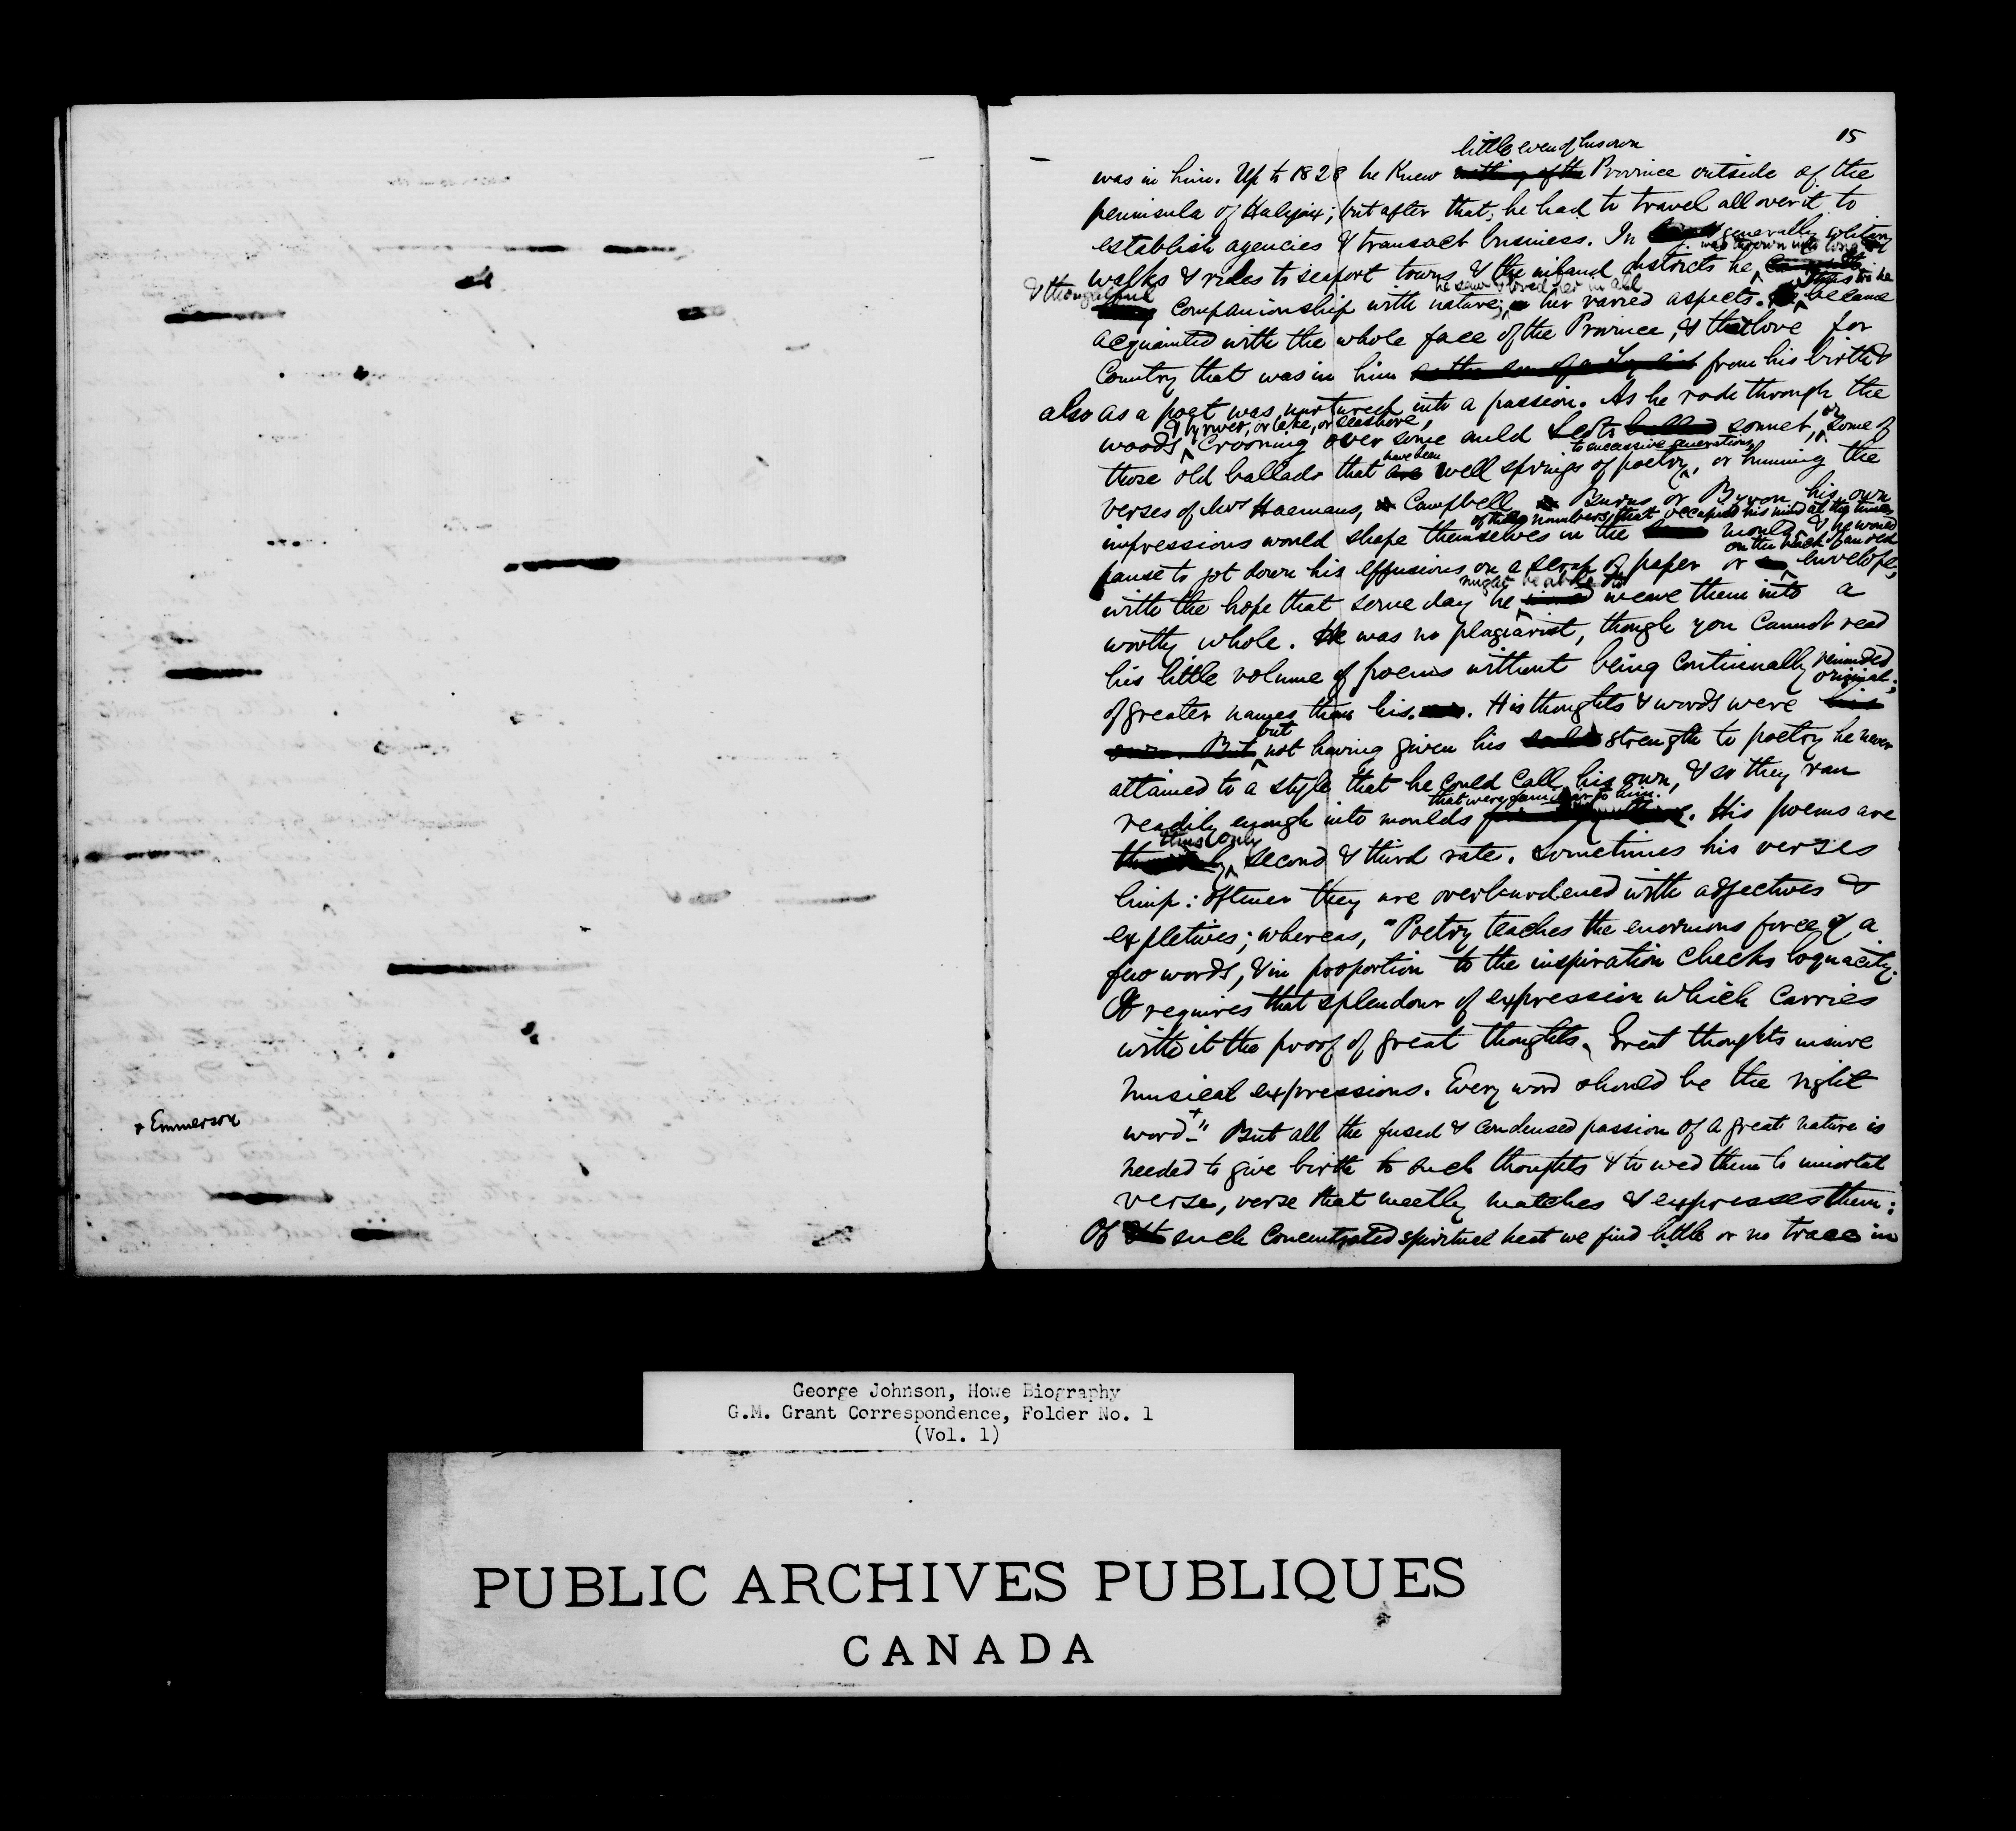 + Emmerson
15
little even of his own
was in him. Up to 1828 he knew nothing of the Province outside of the
peninsula of Halifax; but after that, he had to travel all over it to
establish agencies & transact business. In generally solitary
was thrown into long
walks & rides to seaport towns & the inland districts he
& thoughtful he saw & loved her in all thus he
companionship with nature; her varied aspects. became
acquainted with the whole face of the Province, & that love for
Country that was in him as the son of a Loyalist from his birth &
also as a poet was nurtured into a passion. As he rode through the
& by river, or lake, or seashore, or
woods crooning over some auld Scots ballad sonnet, some of
have been to successive generations
those old ballads that are well springs of poetry, or humming the
verses of Mrs Haemans, or Campbell or Burns or Byron, his own
of the numbers that occupied his mind at the time
impressions would shape themselves in the mould, & he would
on the back of an old
pause to jot down his effusions on a scrap of paper or a envelope,
might be able to
with the hope that some day he would weave them into a
worthy whole. He was no plagiarist, though you cannot read
his little volume of poems without being continually reminded
original;
of greater names than his. His thoughts & words were his
but
own. But not having given his strength to poetry he never
attained to a style that he could call his own, & so they ran
that were familiar to him.
readily enough into moulds. His poems are
thus only
second & third rate. Sometimes his verses
limp: oftener they are overburdened with adjectives &
expletives; whereas, "Poetry teaches the enormous force of a
few words, & in proportion to the inspiration checks loquacity.
It requires that splendour of expression which carries
with it the proof of great thoughts. Great thoughts insure
musical expressions. Every word should be the right
word +" But all the fused & condensed passion of a great nature is
needed to give birth to such thoughts & to wed them to immortal
verse, verse that meetly matches & expresses them:
Of such concentrated spiritual heat we find little or no trace in
George Johnson, Howe Biography
G.M. Grant Correspondence, Folder No. 1
(Vol. 1)
PUBLIC ARCHIVES PUBLIQUES
CANADA